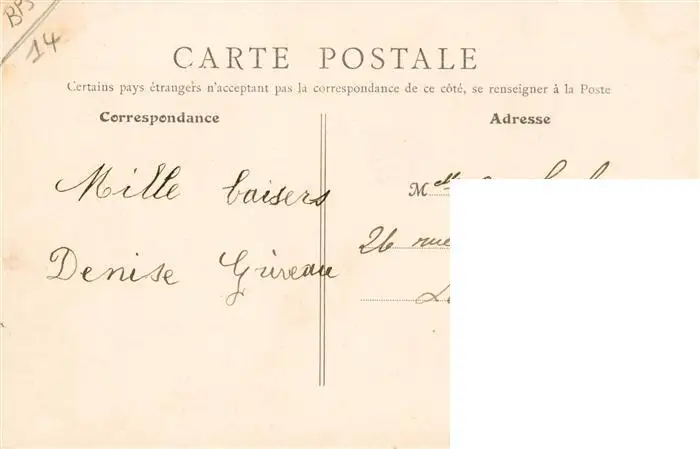 BPS
14
CARTE POSTALE
Certains pays étrangers n'acceptant pas la correspondance de ce côté, se renseigner à la Poste
Correspondance
Mille baisers
Denise Gireau
Adresse
M elle
26 rue